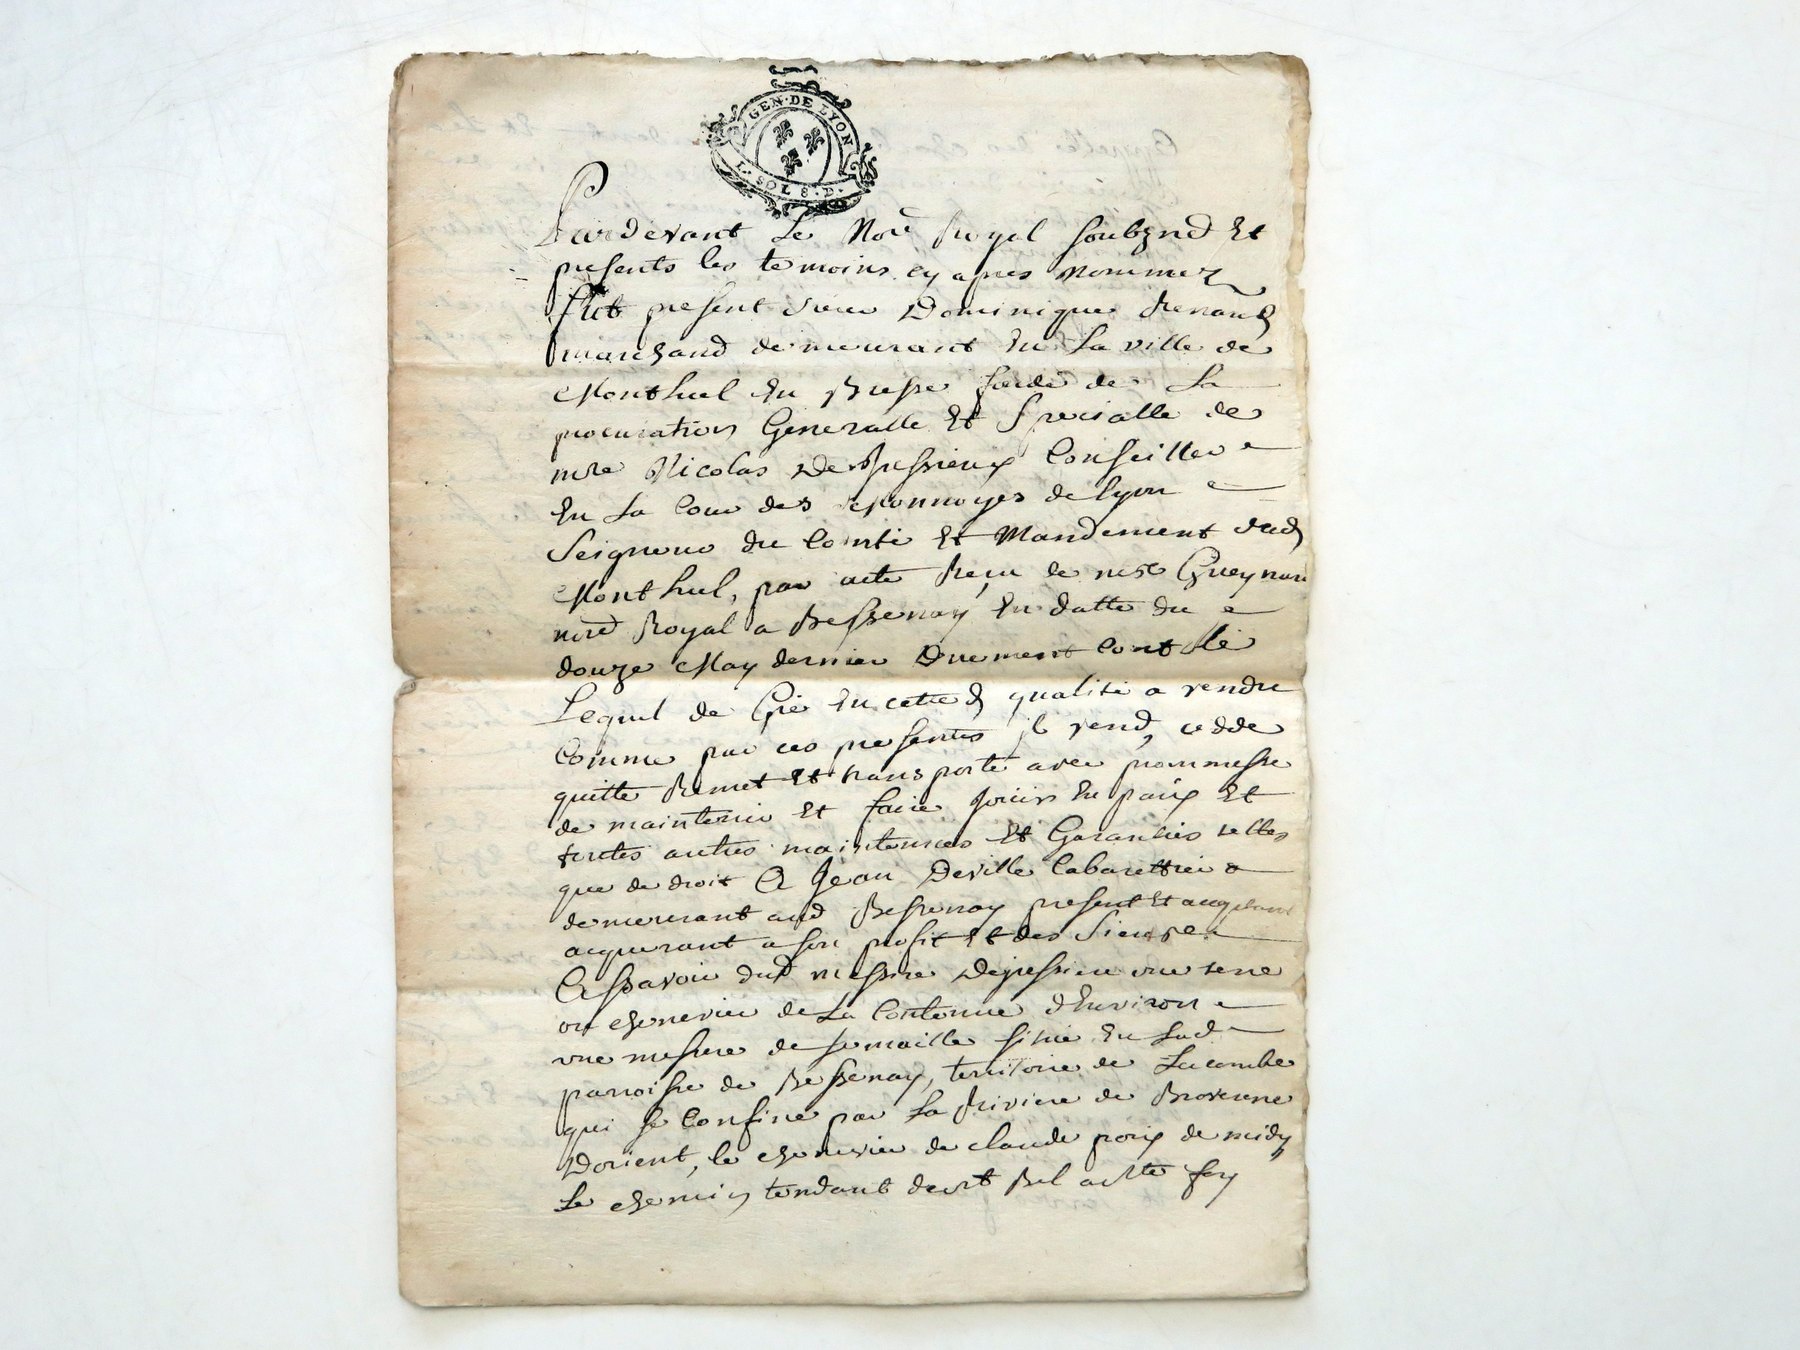 GEN · DE LYON
L · SOL 8 · D ·
Pardevant Le Nore Royal soubzne Et
presents les temoins cy apres nommez
fut present sieur Dominique Renaud
marchand demeurant En La ville de
Montluel En Bresse fondé de La
procuration Generalle Et Specialle de
mre Nicolas De Jussieux Conseiller
En La Cour des Monnoyes de Lyon
Seigneur du Comté Et Mandement dud
Montluel, par acte Reçu de me Gueynard
nore Royal a Bessenay En datte du
douze May dernier Duement Contllé
Lequel de Gré En cette d qualité a vendu
Comme par ces presentes jl vend, cedde
quitte Remet Et transporte avec prommesse
de maintenir Et faire Jouir En paix Et
toutes autres maintenues Et Garanties telles
que de droit A Jean Deville Cabarettier
demeurant aud Bessenay present Et acceptant
acquerant a son profit Et des Siens
Assavoir dud messire Dejussieu une terre
ou chenevier de La Contenue d'Environ
une mesure de semaille sitüé En Lad
parroisse de Bessenay, territoire de Lacombe
qui se Confine par La Riviere de Brevenne
Dorient, le chenevier de claude de midy
Le chemin tendant